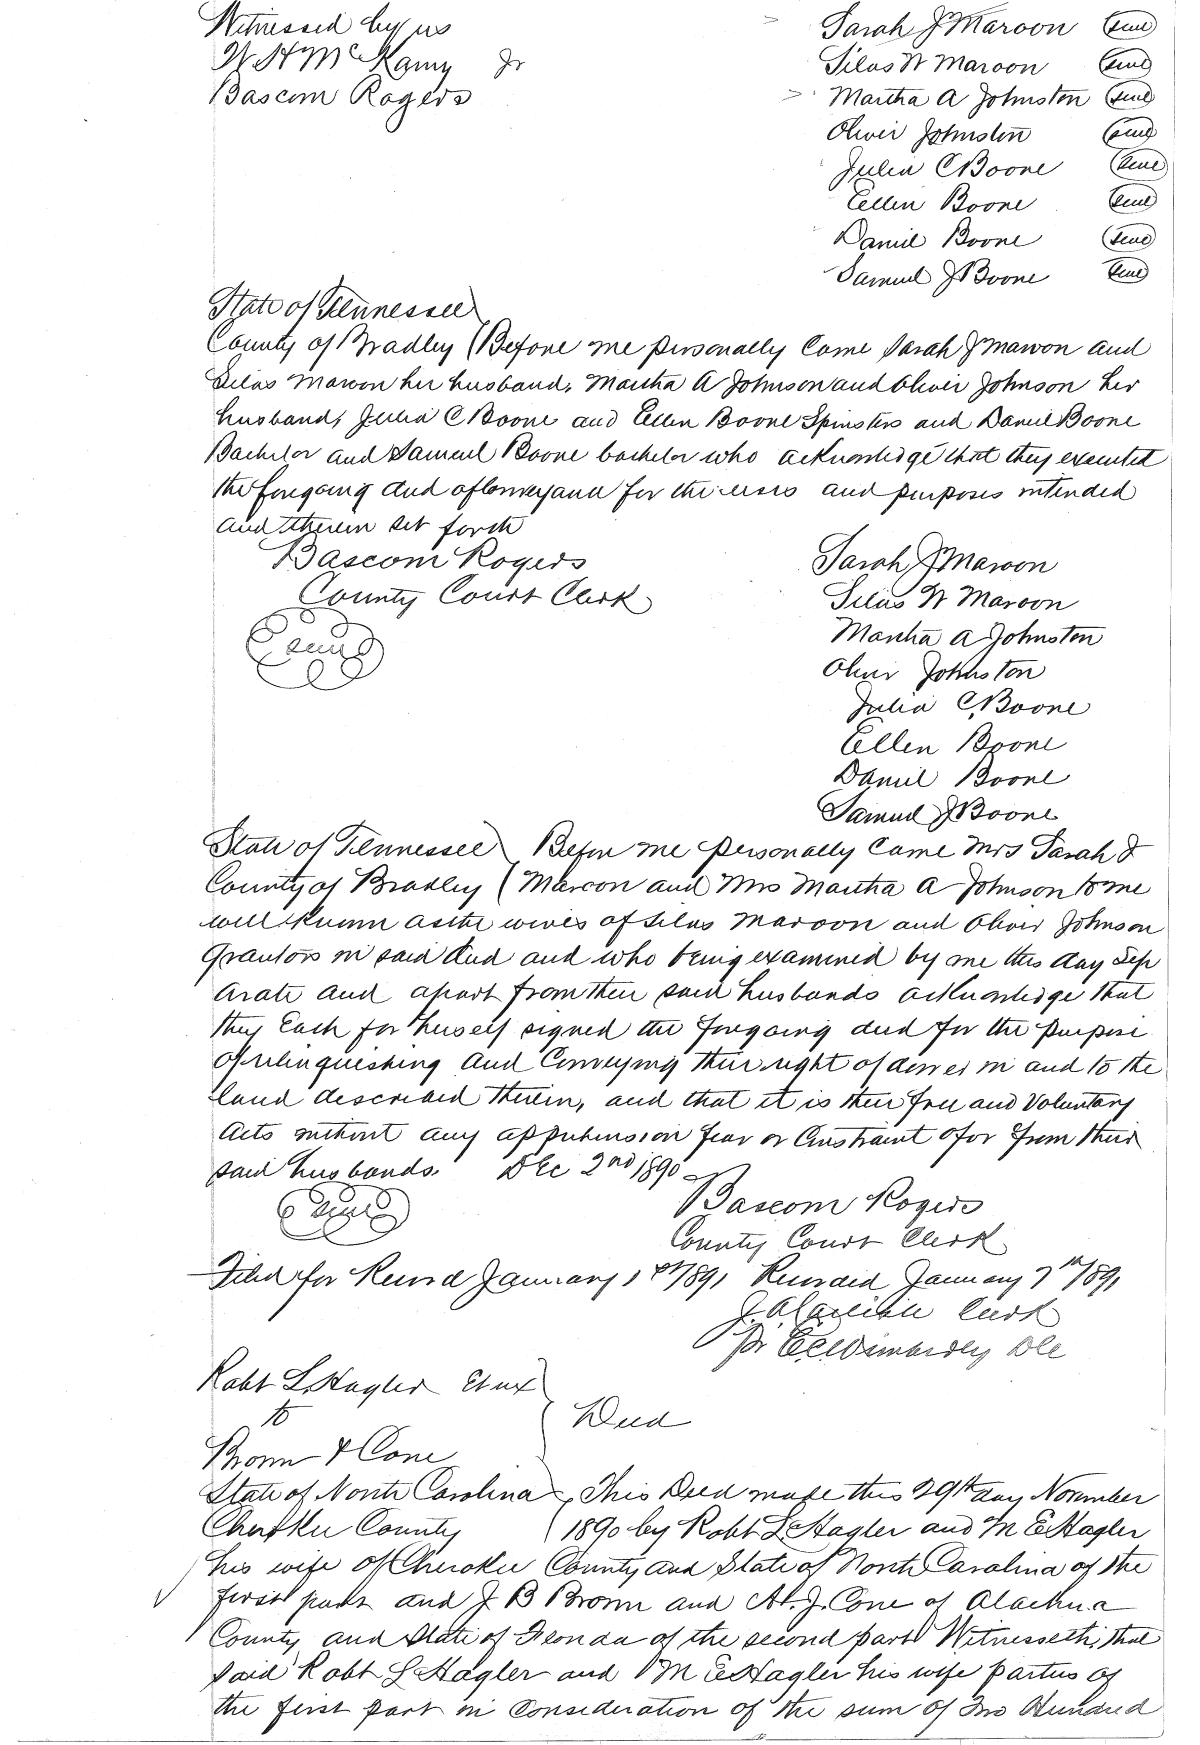 Witnessed by us
W H McKamy Jr
Bascom Rogers
Sarah J Maroon Seal
Silas W Maroon Seal
Martha A Johnston Seal
Oliver Johnston Seal
Julia C Boone Seal
Ellen Boone Seal
Daniel Boone Seal
Samuel J Boone Seal
State of Tennessee
County of Bradley Before me personally came Sarah J Maroon and
Silas Maroon her husband, Martha A Johnson and Oliver Johnson her
husband, Julia C Boone and Ellen Boone Spinsters and Daniel Boone
Bachelor and Samuel Boone bachelor who acknowledge that they executed
the foregoing deed of conveyance for the uses and purposes intended
and therein set forth
Bascom Rogers
County Court Clerk
Seal
Sarah J Maroon
Silas W Maroon
Martha A Johnston
Oliver Johnston
Julia C Boone
Ellen Boone
Daniel Boone
Samuel J Boone
State of Tennessee Before me personally came Mrs Sarah J
County of Bradley Maroon and Mrs Martha A Johnson to me
well known as the wives of Silas Maroon and Oliver Johnson
Grantors in said deed and who being examined by me this day sep
arate and apart from their said husbands acknowledge that
they each for herself signed the foregoing deed for the purpose
of relinquishing and conveying their right of dower in and to the
land described therein, and that it is their free and voluntary
acts without any apprehension fear or constraint of or from their
said husbands. Dec 2nd 1890
Seal
Bascom Rogers
County Court Clerk
Filed for Record January 1st 1891 Recorded January 7th 1891
Clerk
Pr E C Wimberly D C
Robt L Hagler et ux
to
Deed
Brown & Cone
State of North Carolina This Deed made this 29th day November
Cherokee County 1890 by Robt L Hagler and M E Hagler
his wife of Cherokee County and State of North Carolina of the
first part and J B Brown and H. J. Cone of Alachua
County and State of Florida of the second part Witnesseth, that
said Robt L Hagler and M E Hagler his wife parties of
the first part in consideration of the sum of Two Hundred